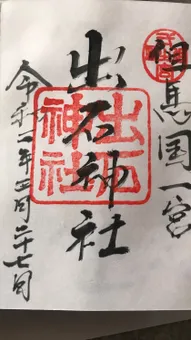 但馬国一宮
出石神社
出石
神社
令和二年
月二十七日